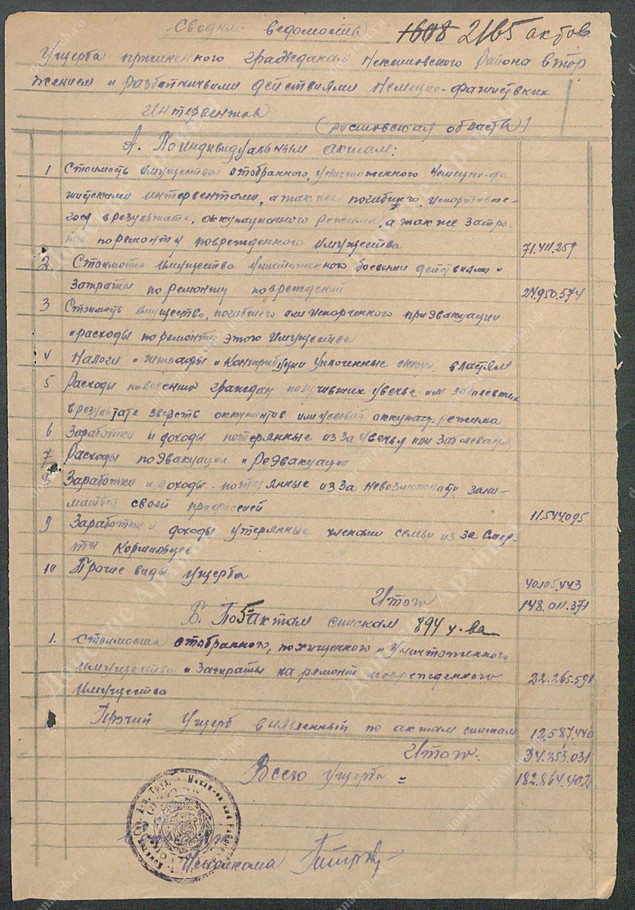 Сводная ведомость 1608 2165 актов
Ущерба причиненного гражданам района втор
жением и разбойничьими действиями Немецко-фашистских
Интервентов (ростовская область)
А. По индивидуальным актам:
1 Стоимость имущества отобранного, уничтоженного Немецко-фа
шистскими интервентами, а так же погибшего, испортивше-
гося в результате, оккупационного режима, а так же затра-
ты по ремонту поврежденного имущества 71.411.259
2. Стоимость имущества уничтоженного боевыми действиями и
затраты по ремонту повреждений 24.950.574
3 Стоимость имущества, погибшего или испорченного при Эвакуации
и расходы по ремонту этого имущества
4 Налоги и штрафы и Контрибуции уплоченные оккуп. властям
5 Расходы граждан получивших увечье или заболевших
в результате зверств оккупантов или условий оккупац. режима
6 Заработки и доходы потерянные из за увечья или заболевания
7 Расходы по Эвакуации и РеЭвакуации
8 Заработки и доходы потерянные из за невозможности зани-
маться своей профессией 11.544095
9 Заработки и доходы утерянные членами семьи из за смер-
ти Кормильцев
10 Прочие виды ущерба 40.105.443
Итого 148.011.371
Б. По 5 актам спискам 894 х-ва
1. Стоимость отобранного, похищенного и уничтоженного
имущества и затраты на ремонт поврежденного
имущества 22.265.591
Прочий ущерб выявленный по актам спискам 12.587.440
Итого. 34.353.031
Всего ущерба = 182.864.402
Исполкома